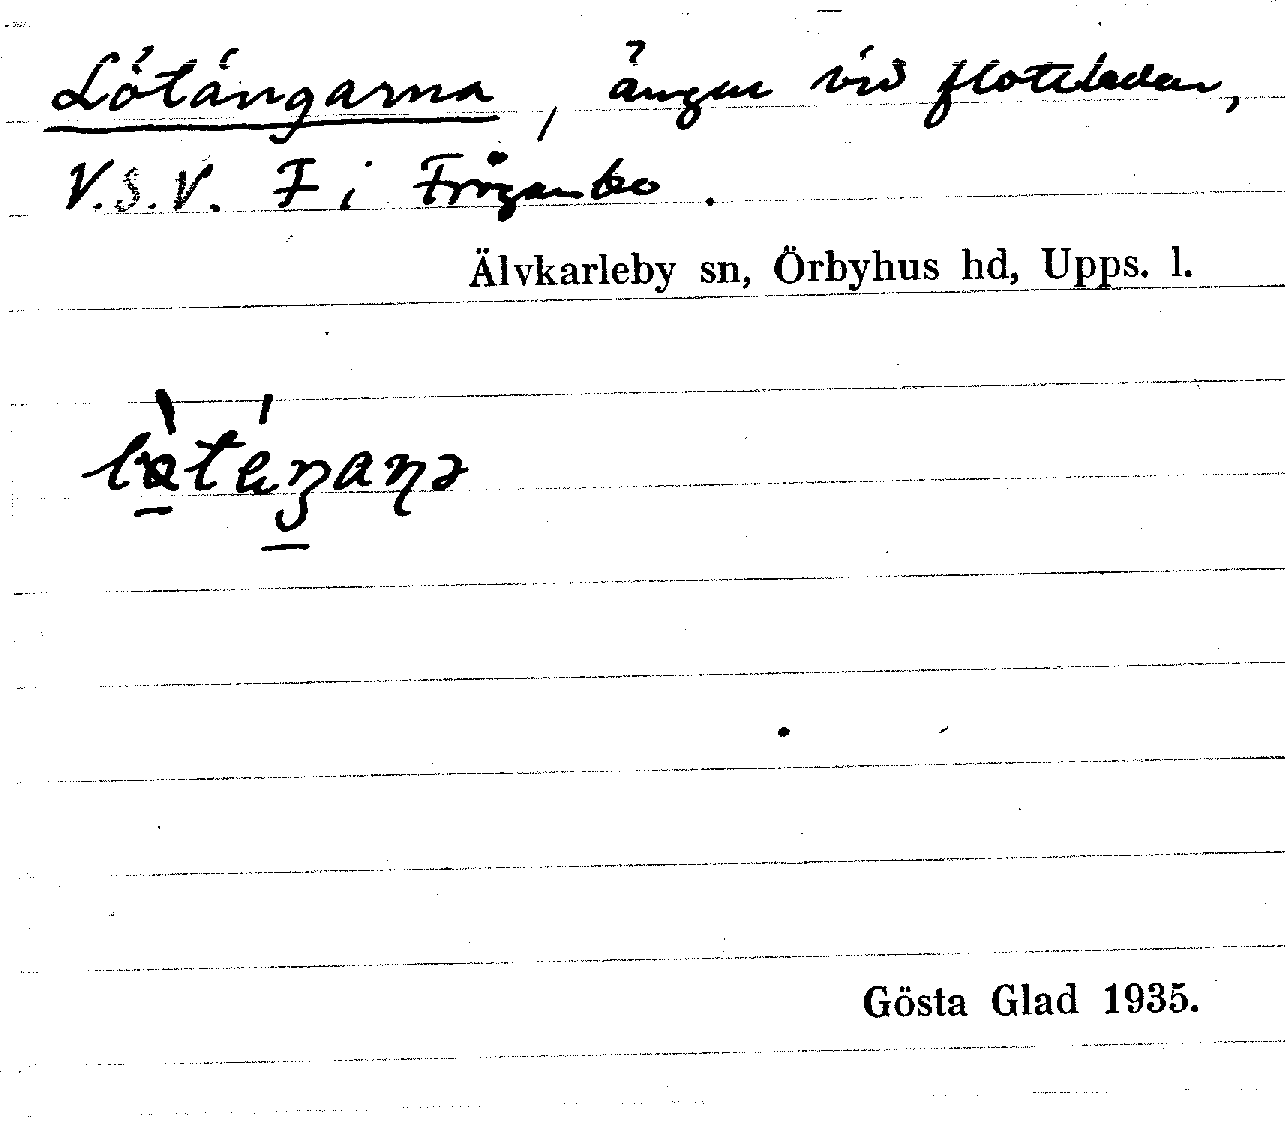 Lötängarna, ängar vid flottleden,
V.S.V. F i Frögånbo.
Älvkarleby sn, Örbyhus hd, Upps. l.
Gösta Glad 1935.